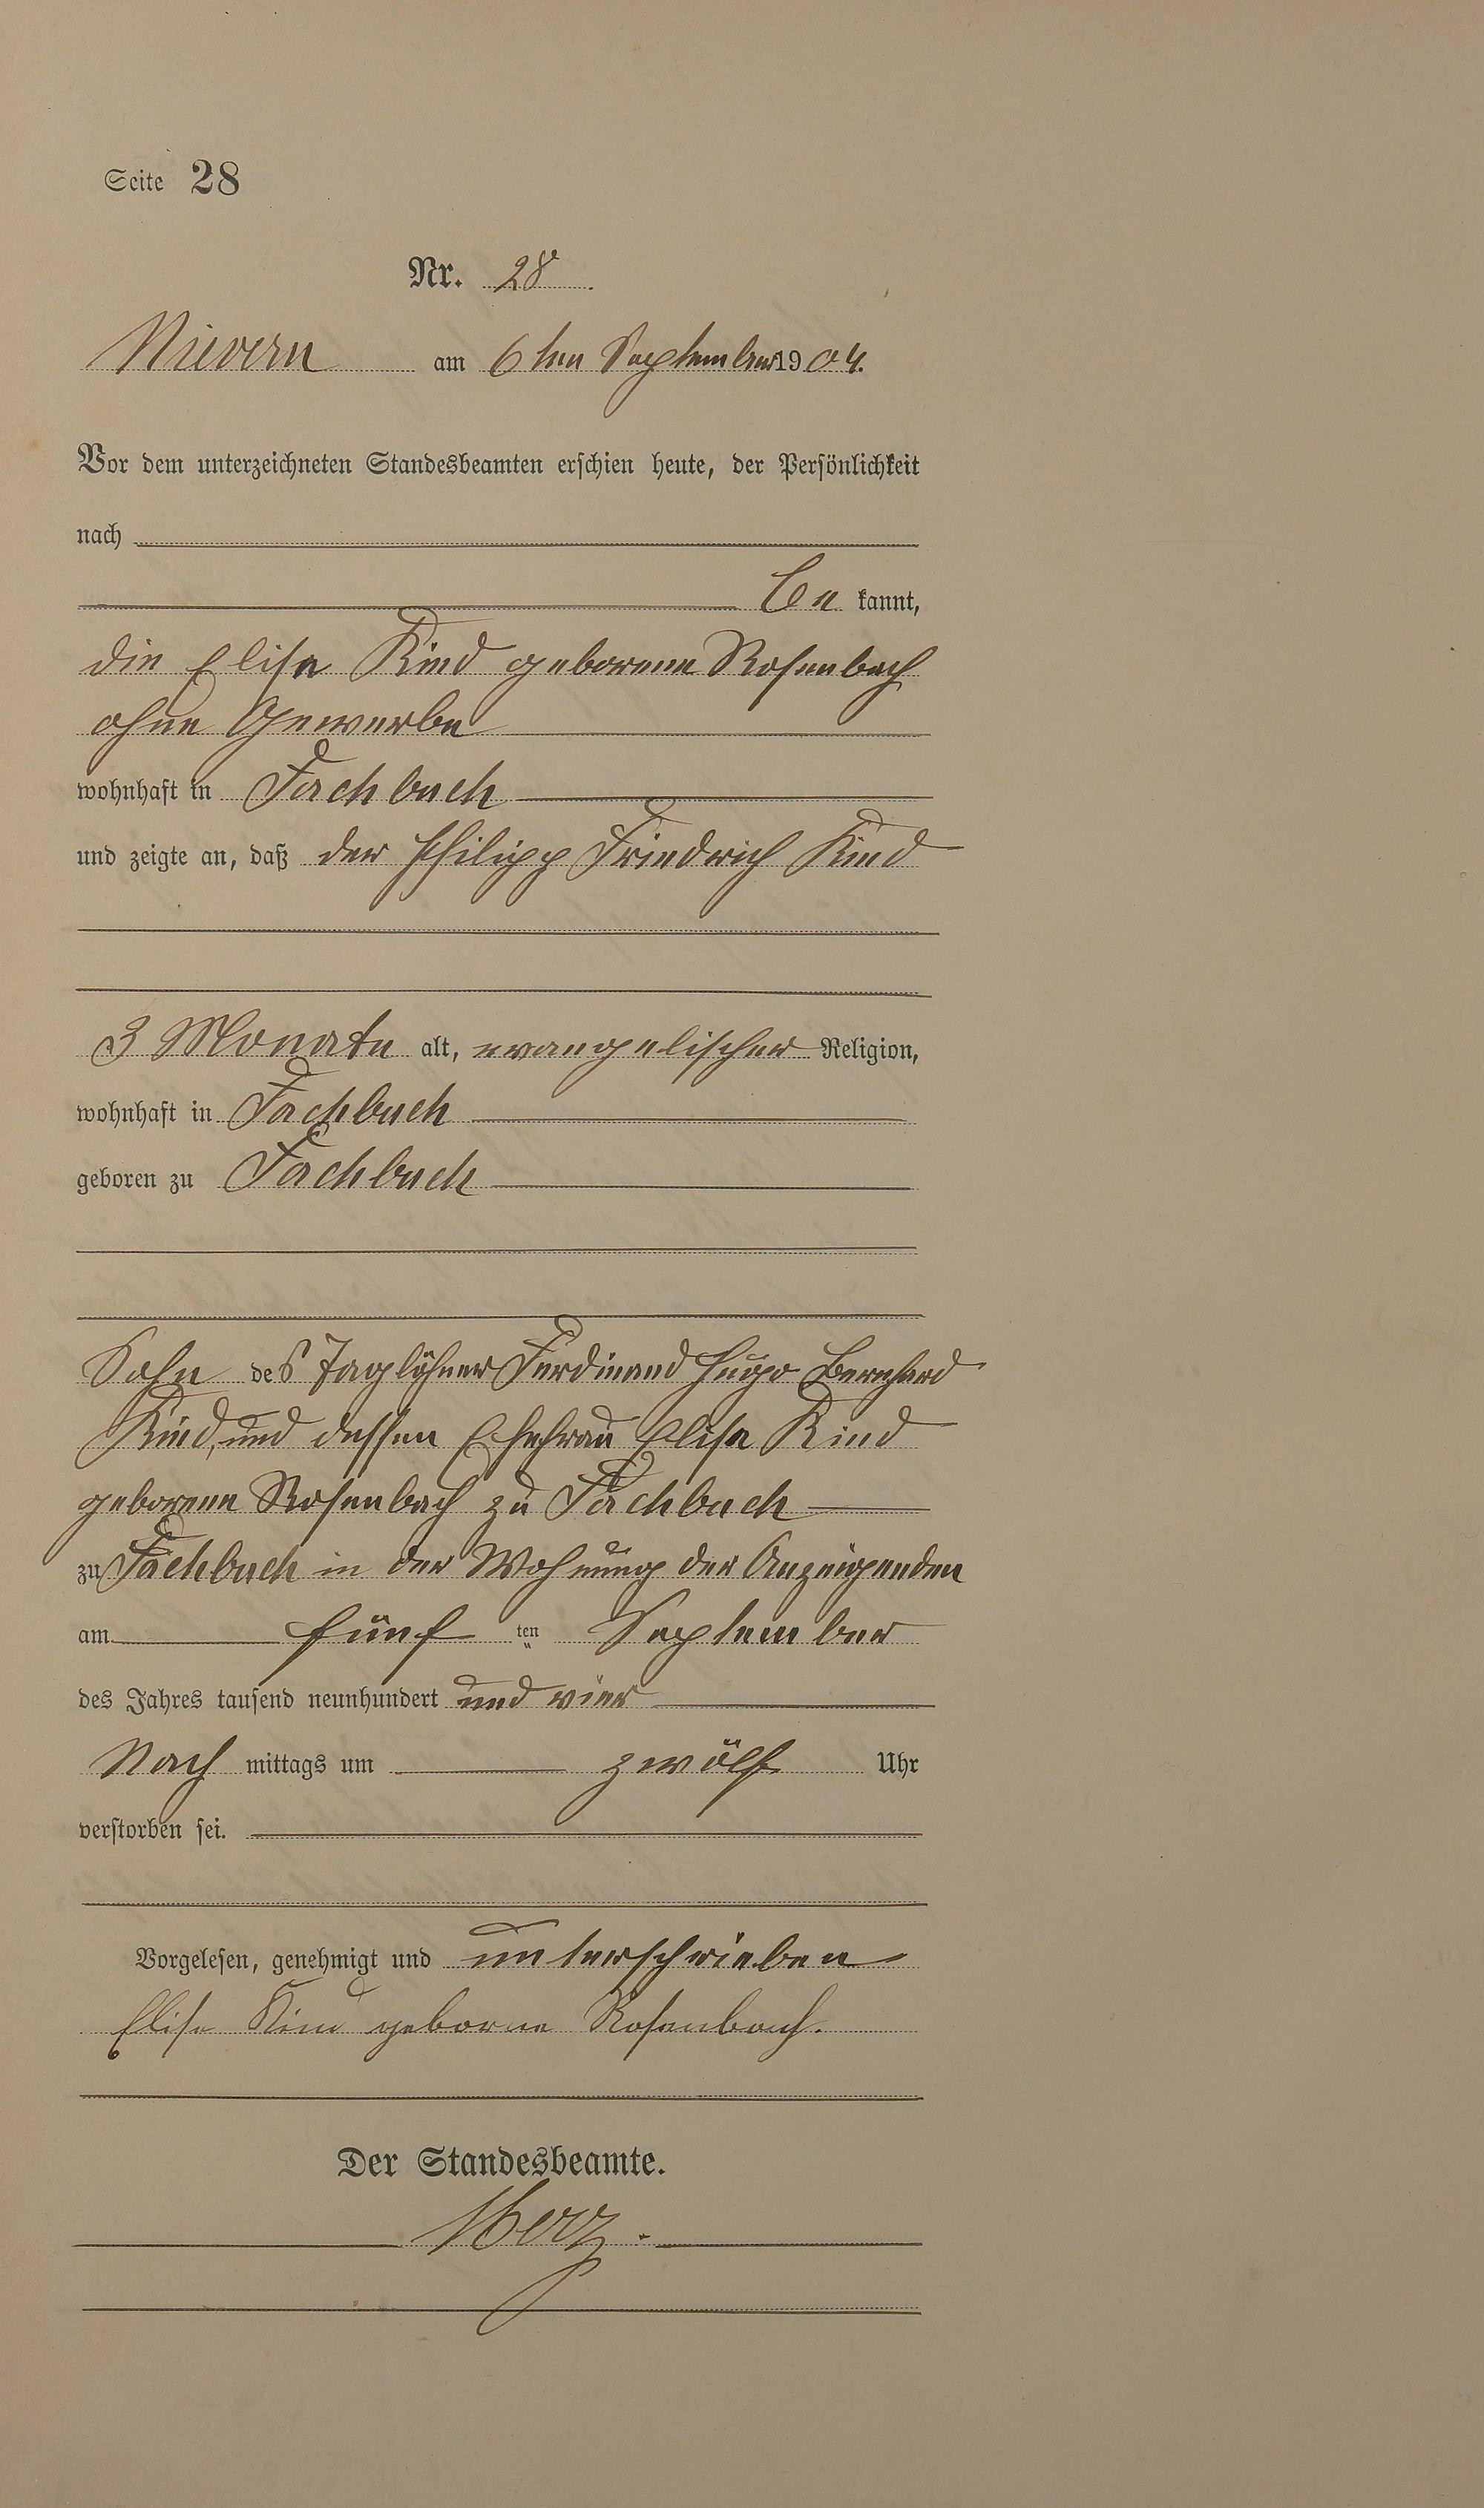 Seite 28
Nr. 28.
Nievern am 6ten September 1904.
Vor dem unterzeichneten Standesbeamten erschien heute, der Persönlichkeit
nach
be kannt,
die Elise Kind geborene Rosenbach
ohne Gewerbe
wohnhaft in Fachbach
und zeigte an, daß der Philipp Friedrich Kind
3 Monate alt, evangelischer Religion,
wohnhaft in Fachbach
geboren zu Fachbach
Sohn des Taglöhner Ferdinand Hugo Bernhard
Kind, und dessen Ehefrau Elise Kind
geborene Rosenbach zu Fachbach
zu Fachbach in der Wohnung der Anzeigenden
am fünf ten September
des Jahres tausend neunhundert und vier
Nach mittags um zwölf Uhr
verstorben sei.
Vorgelesen, genehmigt und unterschrieben
Elise Kind geborne Rosenbach.
Der Standesbeamte.